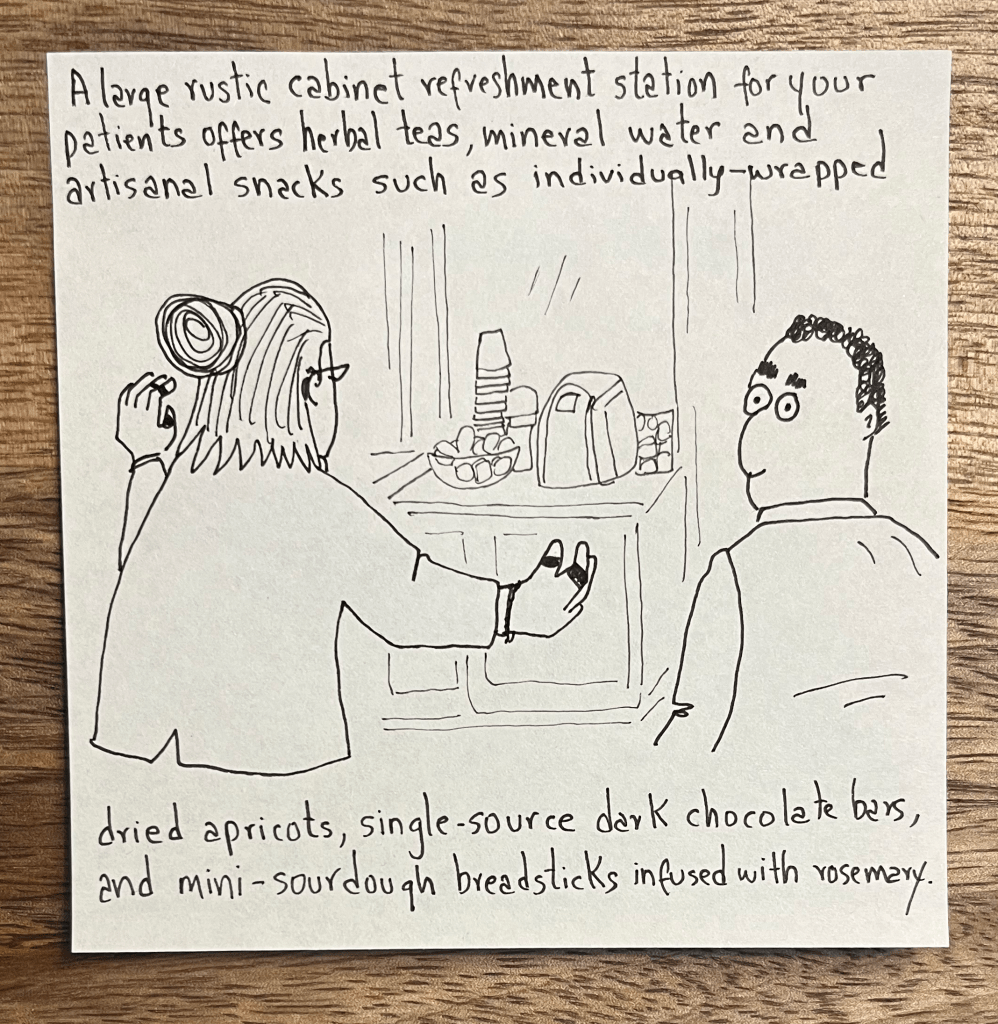 A large rustic cabinet refreshment station for your
patients offers herbal teas, mineral water and
artisanal snacks such as individually-wrapped
dried apricots, single-source dark chocolate bars,
and mini-sourdough breadsticks infused with rosemary.